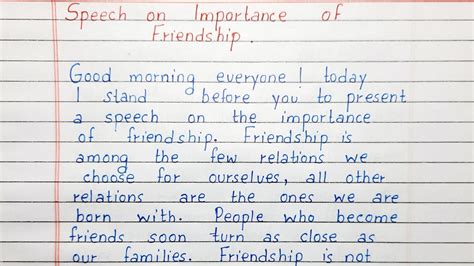 Speech on Importance of
Friendship.
Good morning everyone! today
I stand before you to present
a speech on the importance
of friendship. Friendship is
among the few relations we
choose for ourselves, all other
relations are the ones we are
born with. People who become
friends soon turn as close as
our families. Friendship is not